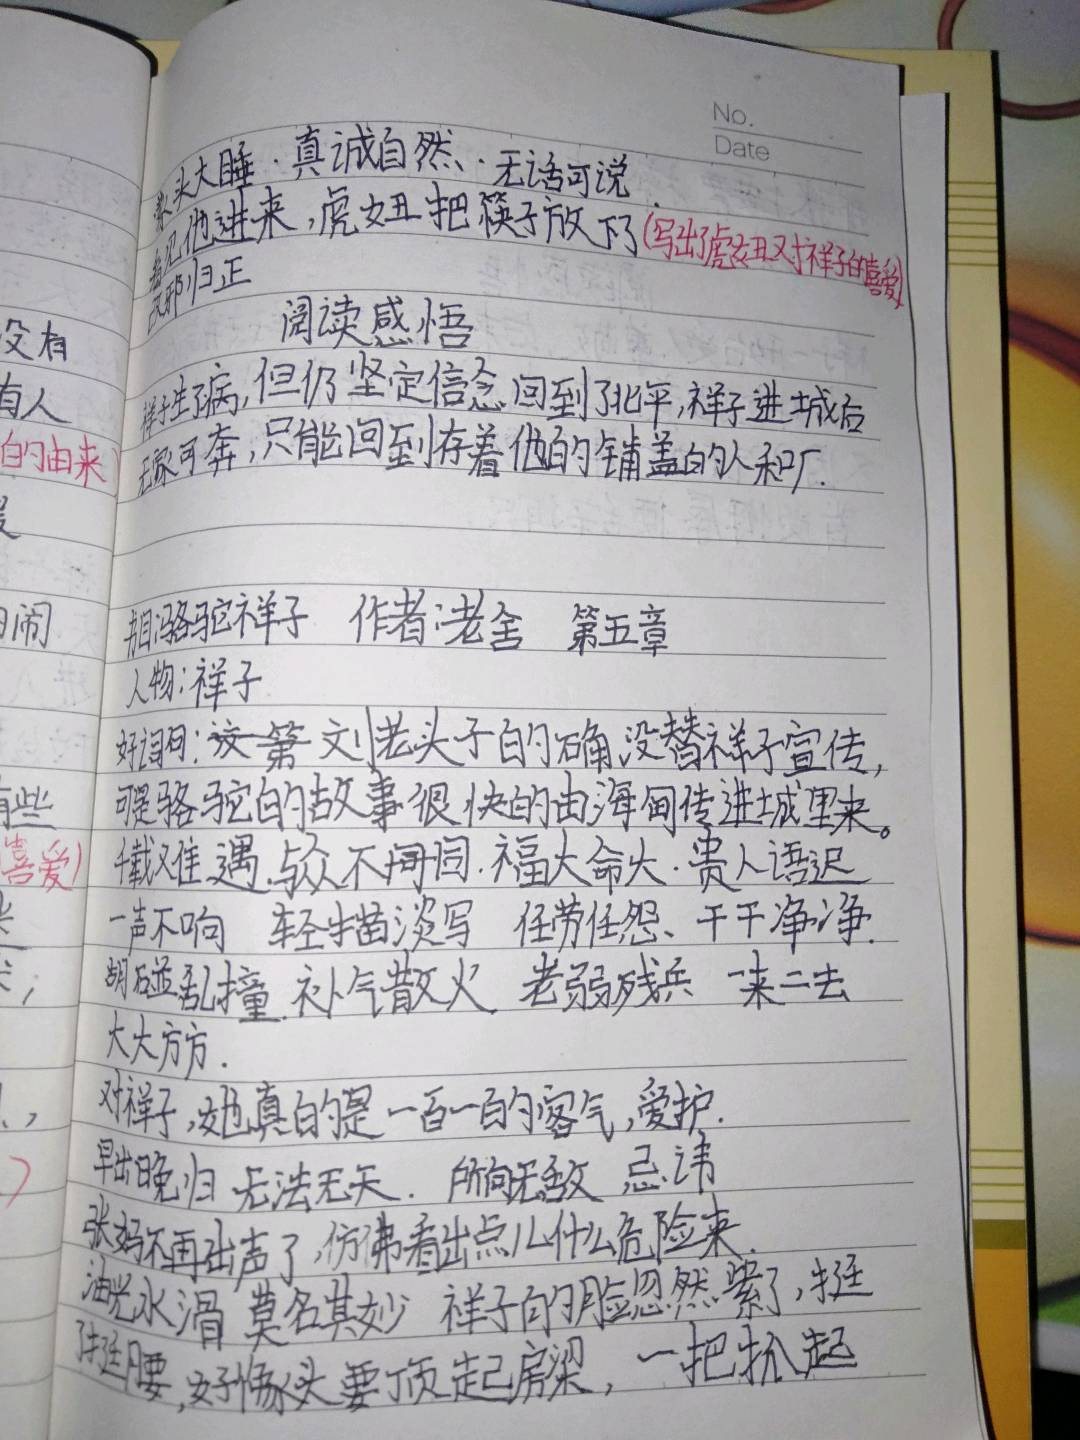 No.
Date
蒙头大睡·真诚自然、·无话可说
看见他进来,虎妞把筷子放下了(写出了虎妞对祥子的喜爱)
改邪归正
阅读感悟
祥子生了病,但仍坚定信念回到了北平,祥子进城后
无家可奔,只能回到存着他的铺盖的人和厂.
书目:骆驼祥子 作者:老舍 第五章
人物:祥子
好词句:这第 刘老头子的确没替祥子宣传,
可是骆驼的故事很快的由海甸传进城里来。
千载难遇.与众不同同.福大命大·贵人语迟
一声不响 轻描淡写 任劳任怨、干干净净.
胡碰乱撞.补气散火 老弱残兵 一来二去
大大方方.
对祥子,她真的是一百一的客气,爱护.
早出晚归 无法无天. 所向无敌 忌讳
张妈不再出声了,仿佛看出点儿什么危险来.
油光水滑 莫名其妙 祥子的脸忽然紫了,挺
了挺腰,好像头要顶起房梁,一把抓起
没有
有人
的由来)
闹
有些
喜爱)